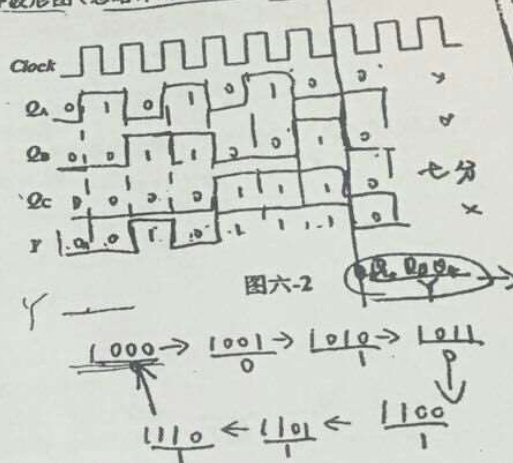 Clock
QA 0 1 0 1 0 1 0 0
QB 0 0 1 1 0 0 1 0
QC 0 0 0 0 1 1 1 0 七分
Y 0 0 1 0 1 1 1 0 ×
图六-2
Y
Y
1000 → 1001 → 1010 → 1011
0 1 0
1110 ← 1101 ← 1100
1 1 1